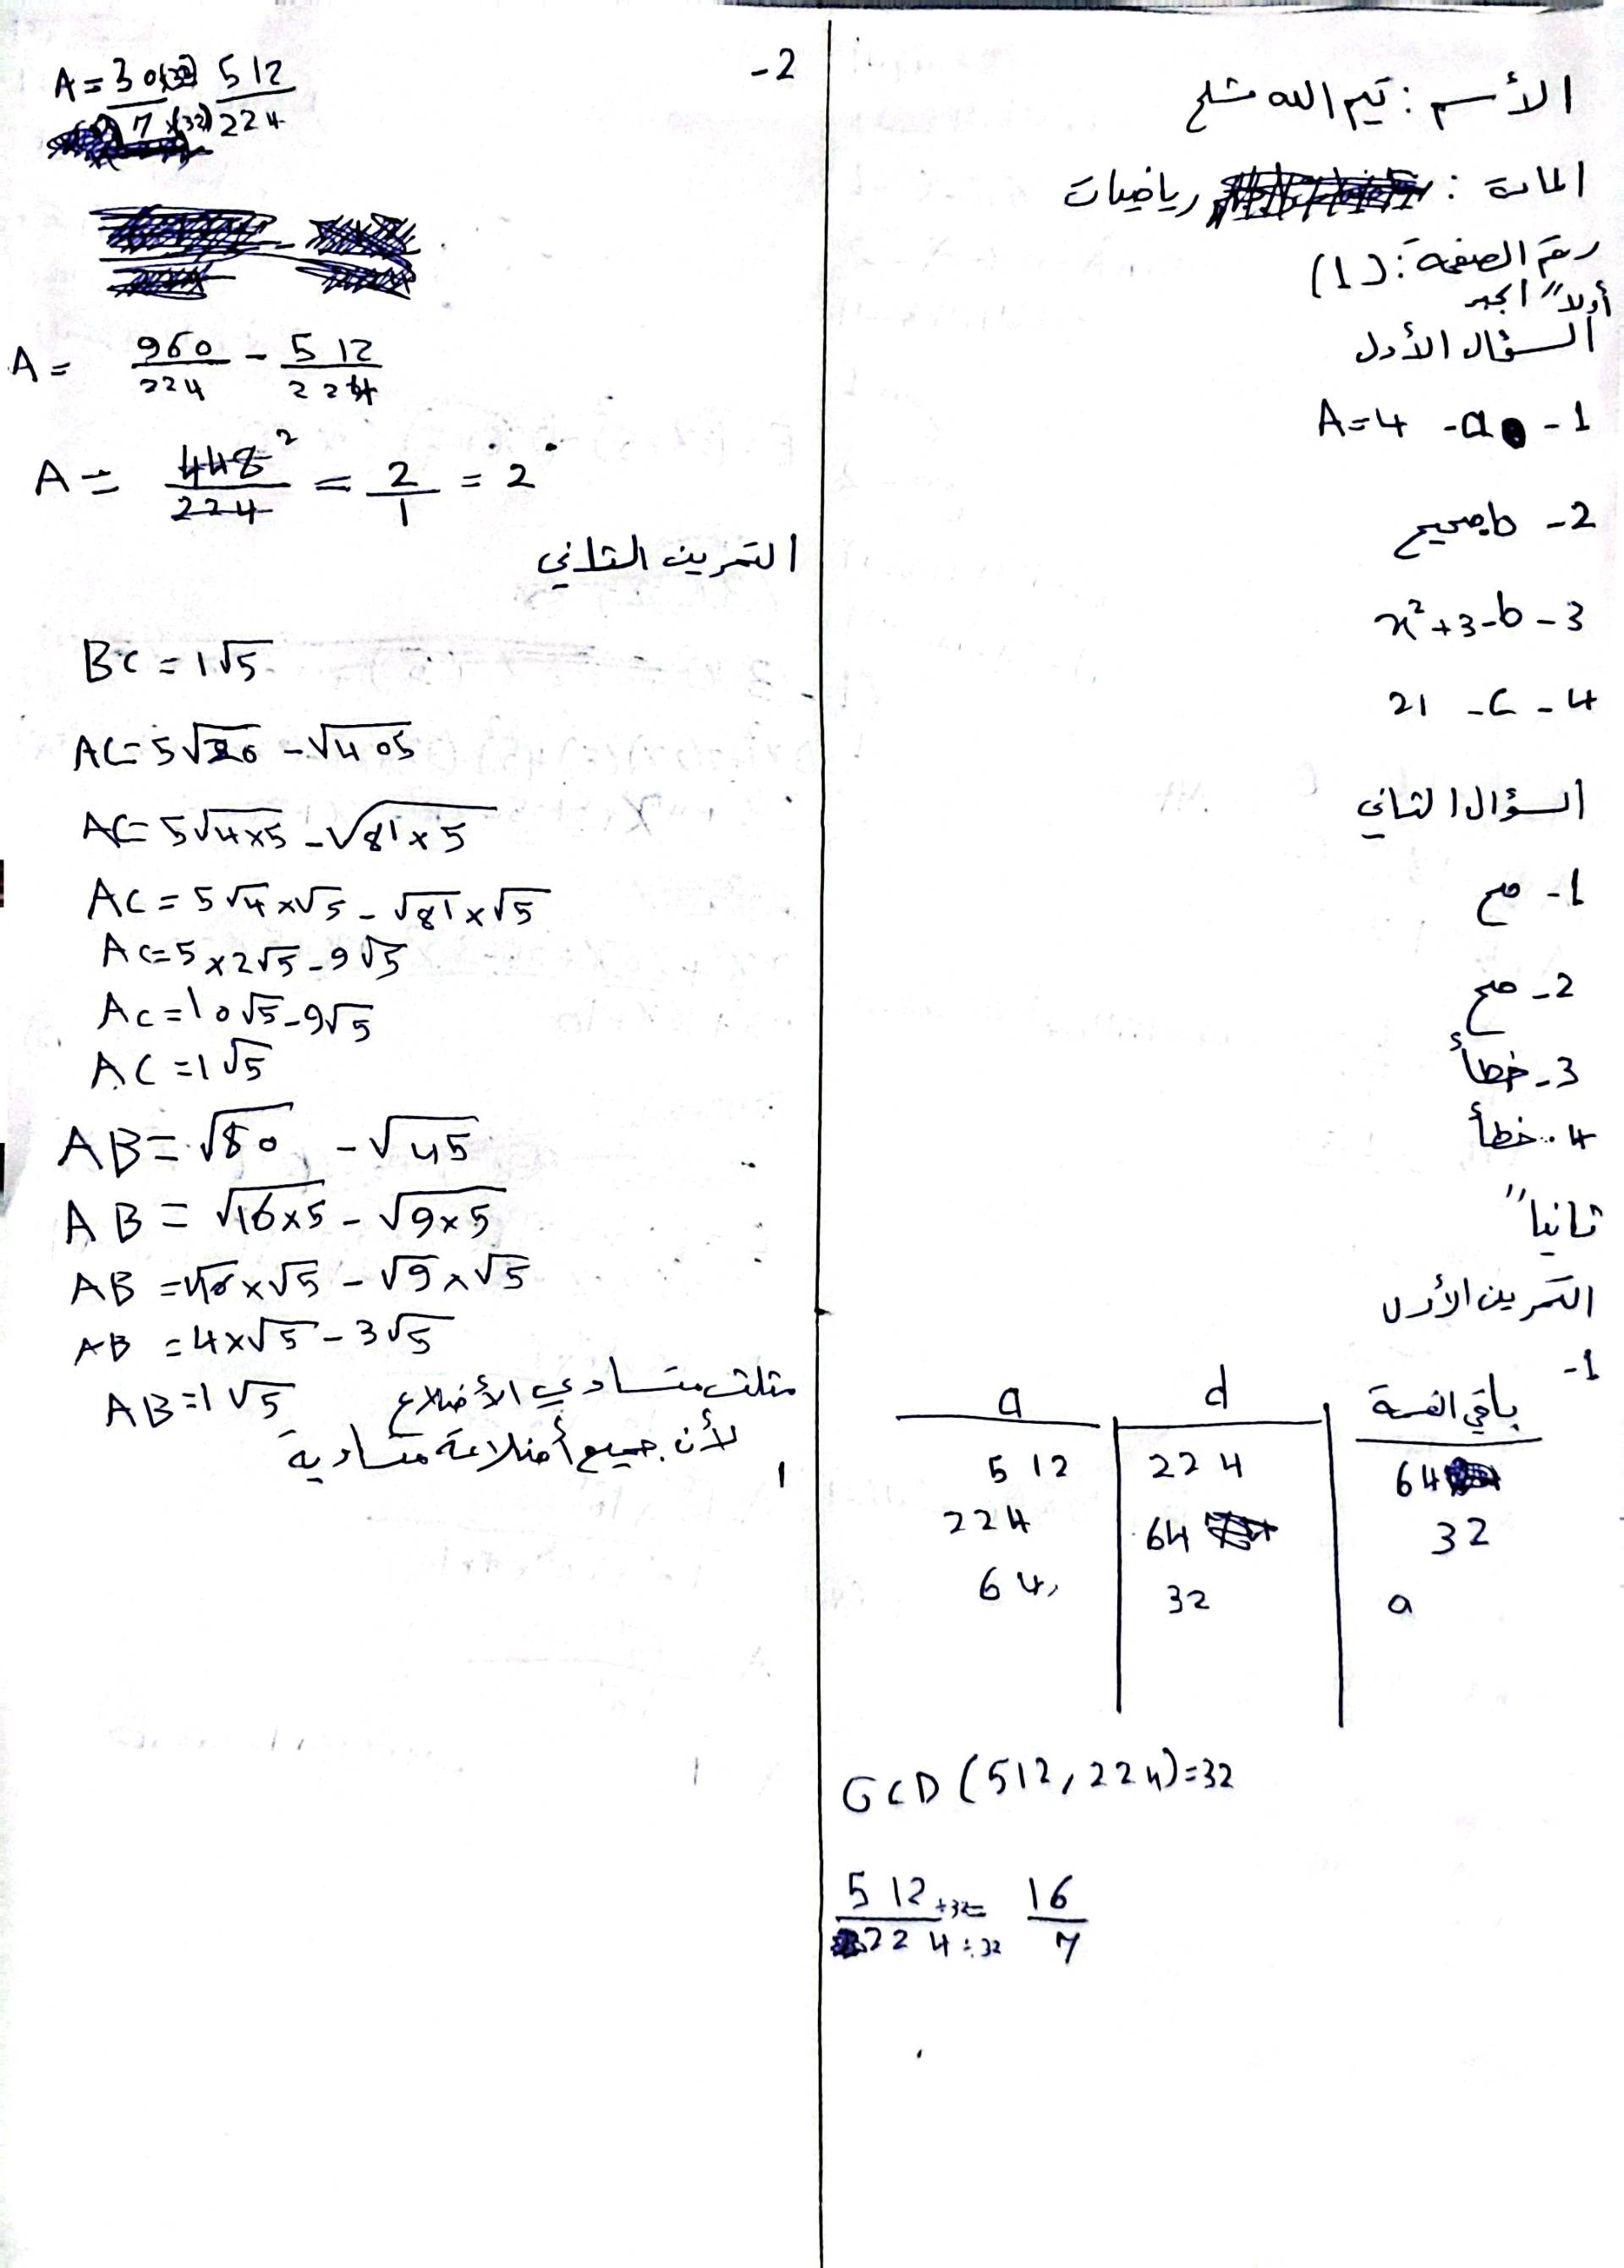 الأسم : تيم الله مشلح
المادة : رياضيات
رقم الصفحة : (1)
أولا" الجبر
السؤال الأول
1- a- A=4
2- b صحيح
3- b- x²+3
4- c- 21
السؤال الثاني
1- صح
2- صح
3- خطأ
4- خطأ
ثانيا"
التمرين الأول
1-
a | d | باقي القسمة
512 | 224 | 64
224 | 64 | 32
64 | 32 | 0
GCD (512, 224)=32
512÷32 / 224÷32 = 16/7
2-
A = 30×(32) / 7×(32) 512/224
A = 960/224 - 512/224
A = 448/224 ² = 2/1 = 2
التمرين الثاني
BC = 1√5
AC = 5√20 - √405
AC = 5√4×5 - √81×5
AC = 5√4×√5 - √81×√5
AC = 5×2√5 - 9√5
AC = 10√5 - 9√5
AC = 1√5
AB = √80 - √45
AB = √16×5 - √9×5
AB = √16×√5 - √9×√5
AB = 4×√5 - 3√5
AB = 1√5 مثلث متساوي الأضلاع
لأن جميع أضلاعة متساوية